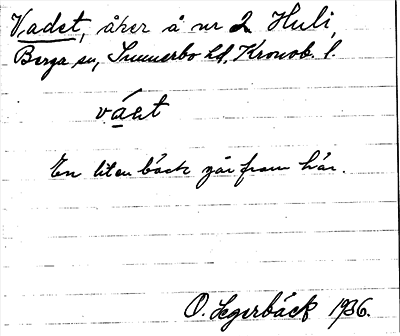 Vadet, åker å nr 2 Huli,
Berga sn, Sunnerbo hd, Kronob. l.
váet
En liten bäck går fram här.
O. Segerbäck 1936.